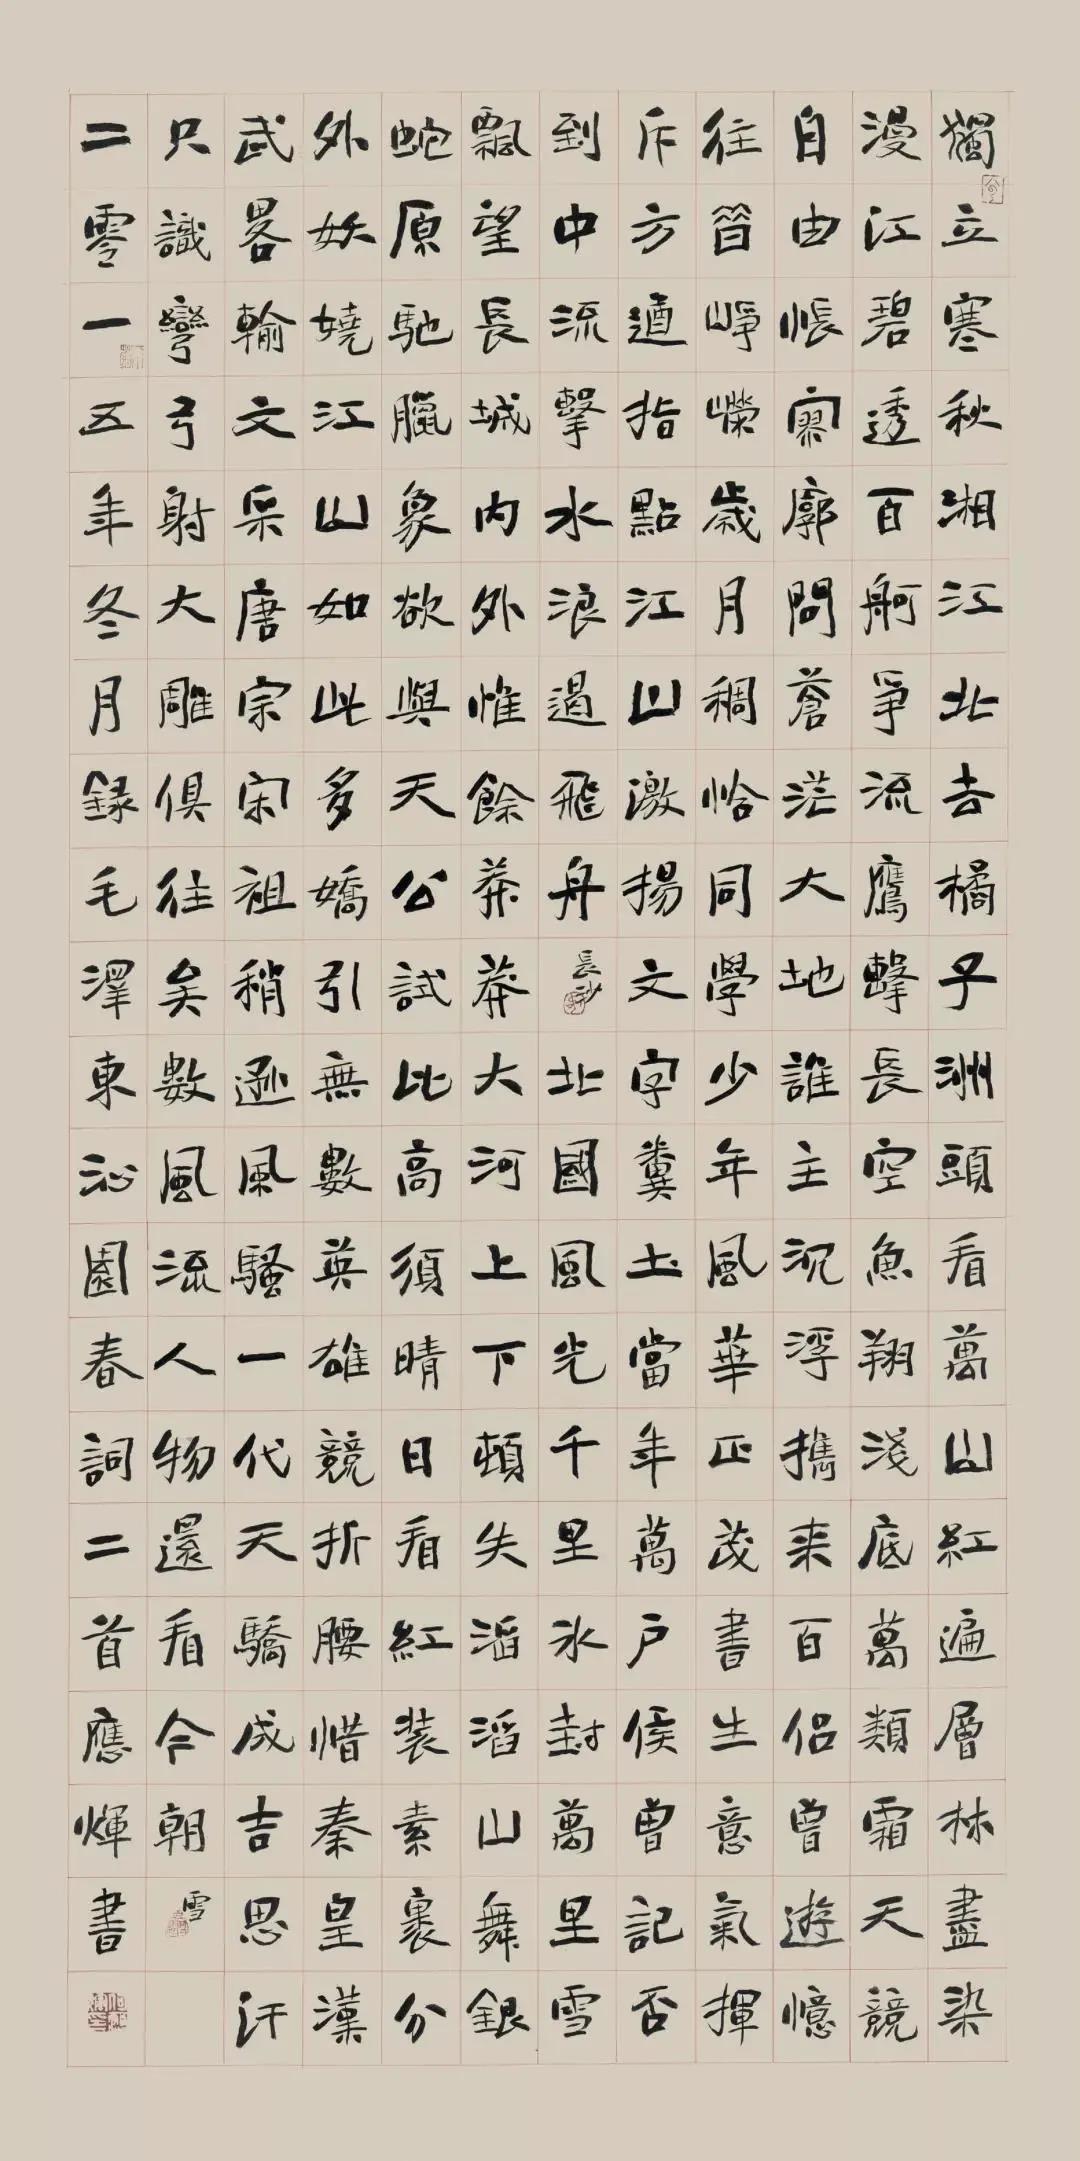 獨立寒秋湘江北去橘子洲頭看萬山紅遍層林盡染
漫江碧透百舸爭流鷹擊長空魚翔淺底萬類霜天競
自由悵寥廓問蒼茫大地誰主沉浮攜来百侶曾遊憶
往昔崢嶸歲月稠恰同學少年風華正茂書生意氣揮
斥方遒指點江山激揚文字糞土當年萬户侯曾記否
到中流擊水浪遏飛舟長沙北國風光千里冰封萬里雪
飄望長城内外惟餘莽莽大河上下頓失滔滔山舞銀
蛇原馳臘象欲與天公試比高須晴日看紅装素裹分
外妖嬈江山如此多嬌引無數英雄競折腰惜秦皇漢
武畧輸文采唐宗宋祖稍遜風騷一代天驕成吉思汗
只識彎弓射大雕俱往矣數風流人物還看今朝雪
二零一五年冬月録毛澤東沁園春詞二首應煇書